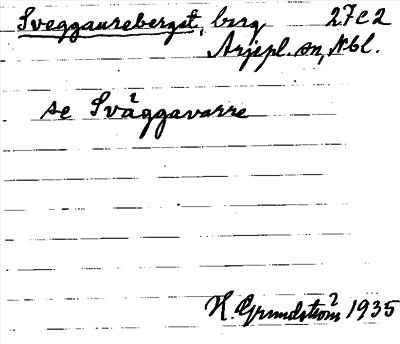 Sveggaureberget, berg 27c2
Arjepl. sn, Nbl.
se Sväggavarre
H. Grundström 1935